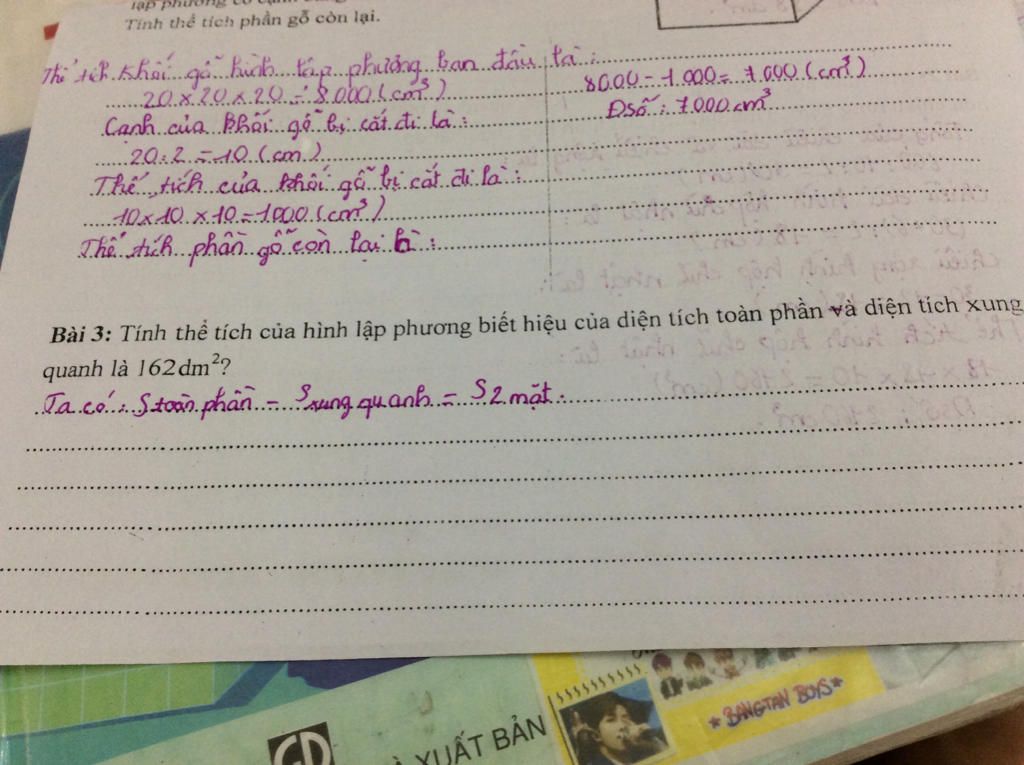 lập phương có cạnh
Tính thể tích phần gỗ còn lại.
Thể tích khối gỗ hình lập phương ban đầu là :
20 x 20 x 20 = 8000 (cm³)
Cạnh của khối gỗ bị cắt đi là :
20 : 2 = 10 (cm)
Thể tích của khối gỗ bị cắt đi là :
10 x 10 x 10 = 1000 (cm³)
Thể tích phần gỗ còn lại là :
8000 - 1000 = 7000 (cm³)
Đsố : 7000 cm³
Bài 3: Tính thể tích của hình lập phương biết hiệu của diện tích toàn phần và diện tích xung
quanh là 162dm²?
Ta có : S toàn phần - S xung quanh = S 2 mặt.
GD
XUẤT BẢN
* BANGTAN BOYS *